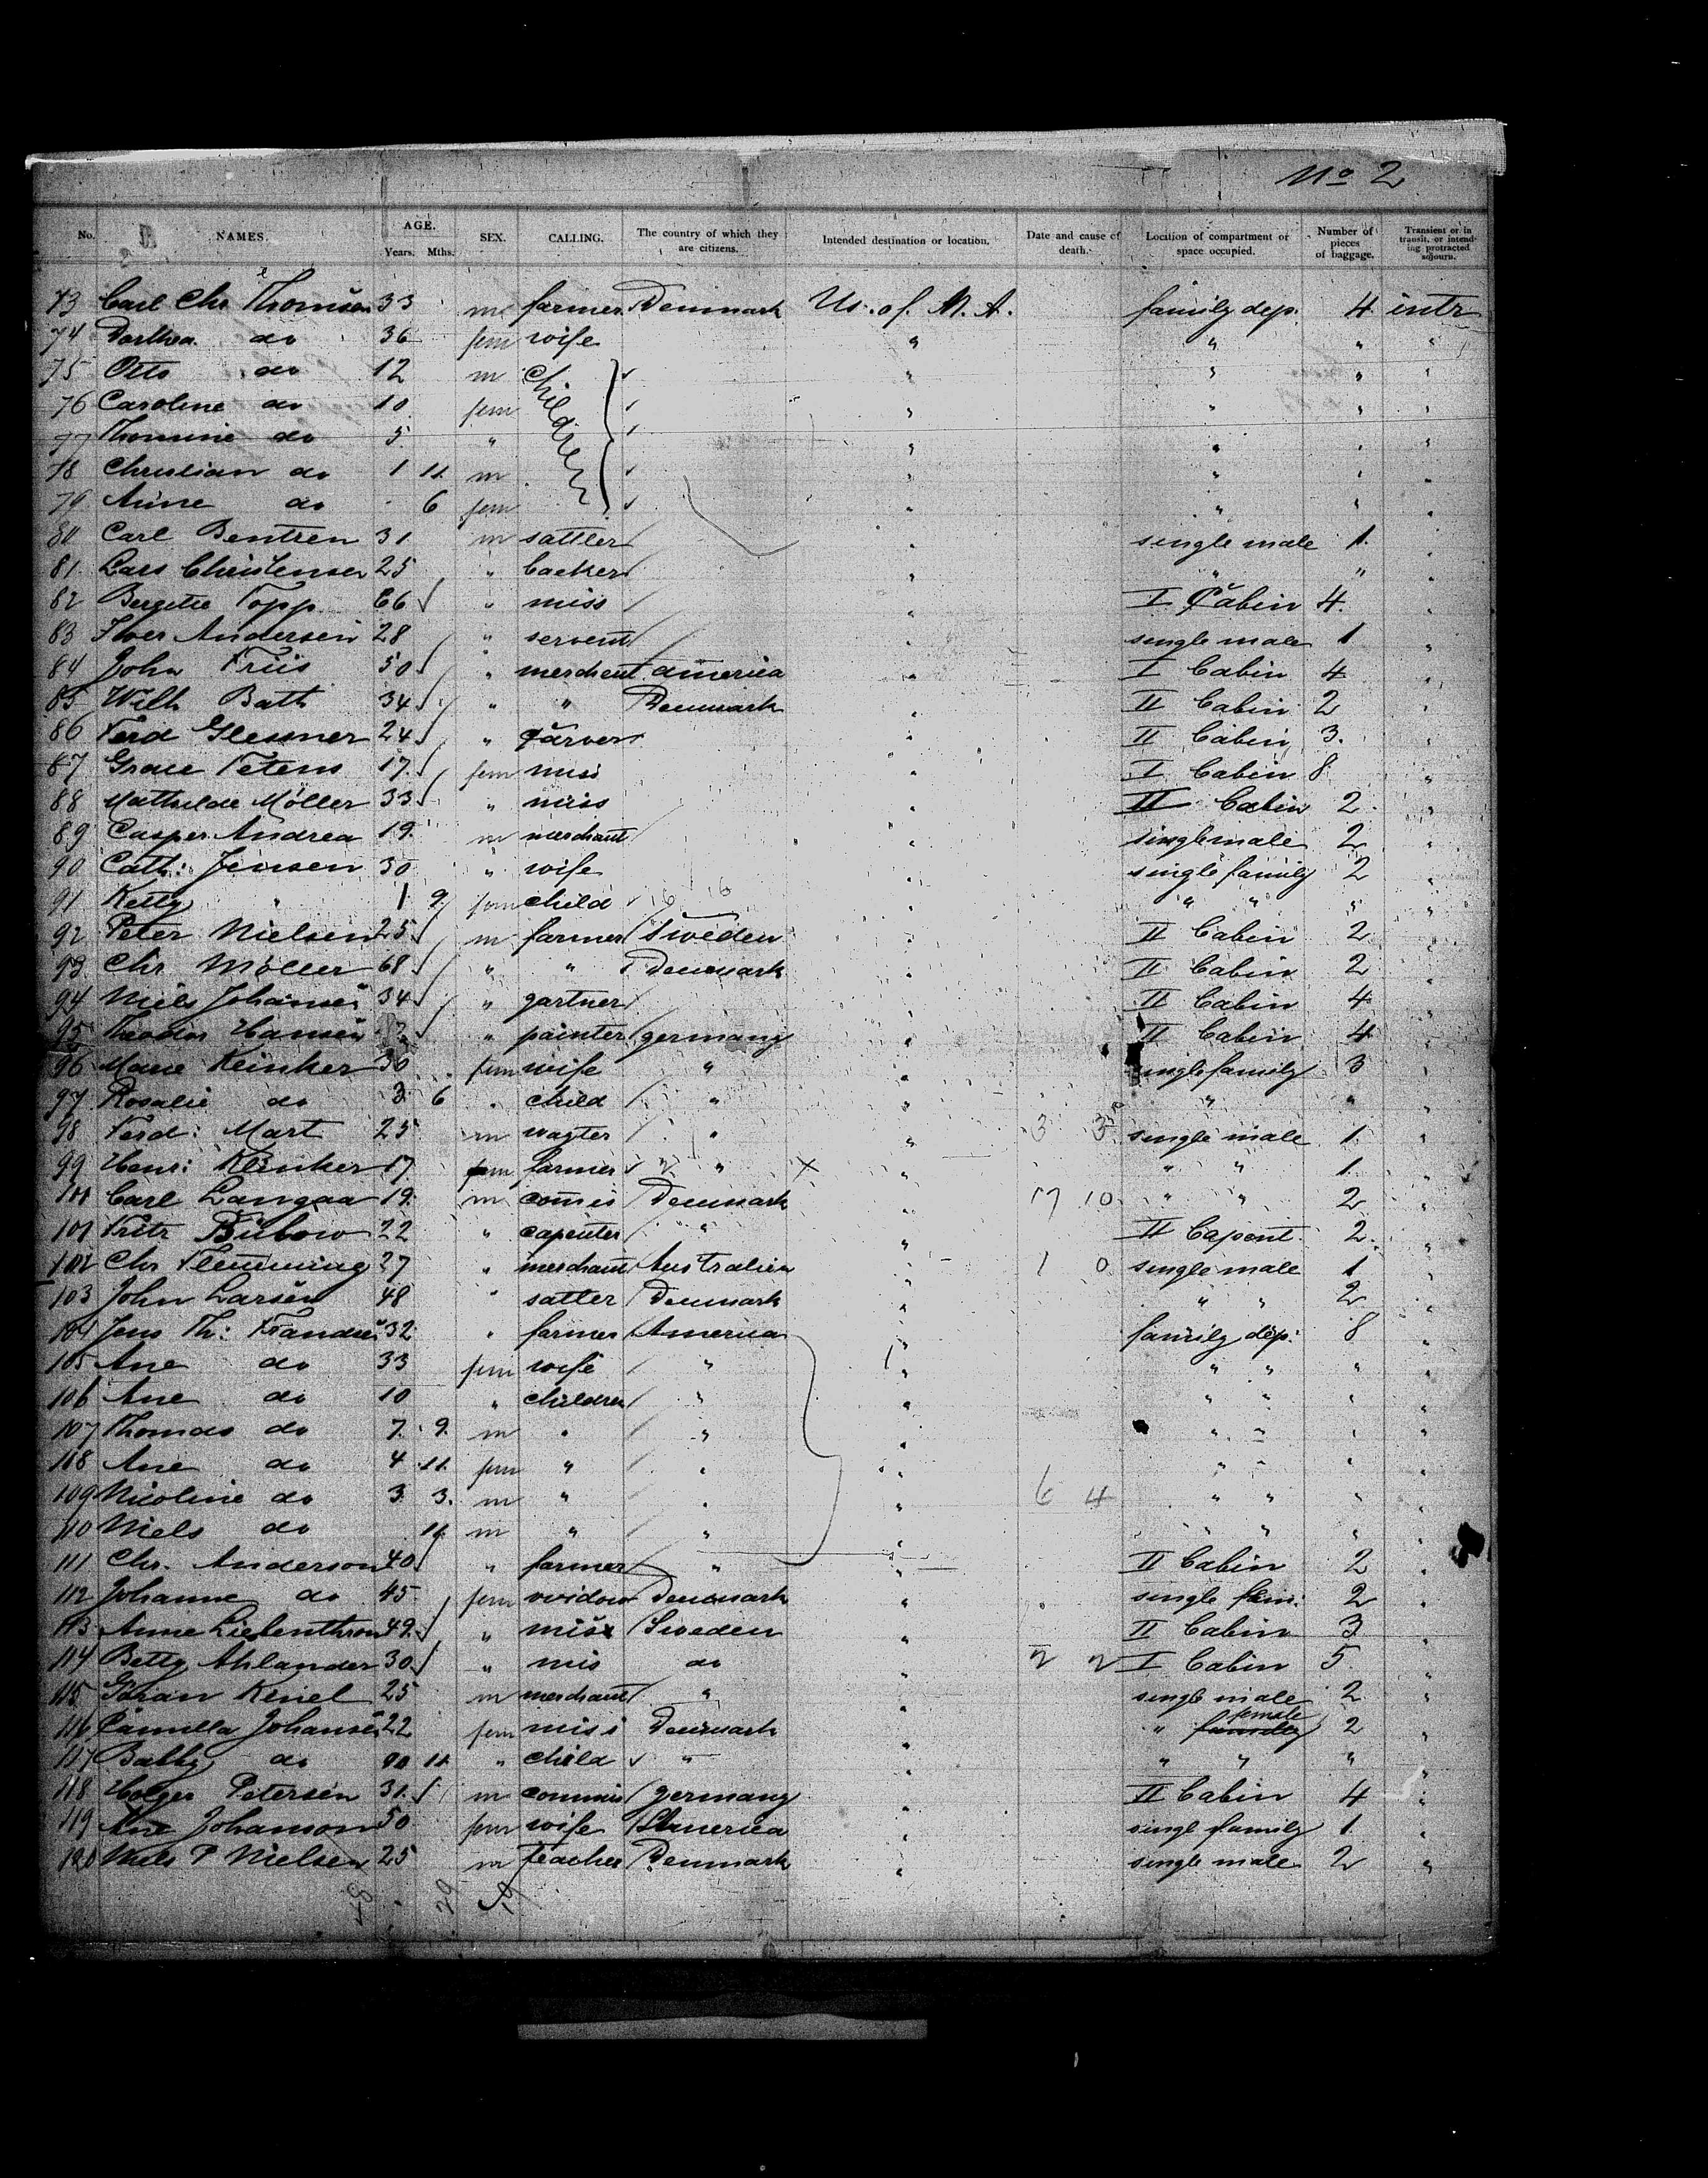 No 2
No. NAMES. AGE. Years. Mths. SEX. CALLING. The country of which they are citizens. Intended destination or location. Date and cause of death. Location of compartment or space occupied. Number of pieces of baggage. Transient or in transit, or intending protracted sojourn.
73 Carl Chr Thomsen 33 m farmer Denmark Us. of. N. A. family dep. 4 intr
74 Dorthea do 36 fem wife " " " "
75 Otto do 12 m Children " " " "
76 Caroline do 10 fem " " " "
77 Thomine do 5 " " " " "
78 Christian do 1 11 m " " " "
79 Anne do - 6 fem " " " "
80 Carl Bentzen 31 m sattler " single male 1 "
81 Lars Christensen 25 " backer " " " "
82 Bergette Topp 66 " miss " I Cabin 4 "
83 Iver Andersen 28 " servent " single male 1 "
84 John Friis 50 " merchent america " I Cabin 4 "
85 Wilh Bath 34 " " Denmark " II Cabin 2 "
86 Ferd Glessner 24 " carver " II Cabin 3. "
87 Grace Petens 17 fem miss " I Cabin 8 "
88 Mathilde Möller 33 " miss " II Cabin 2 "
89 Casper Andrea 19 m merchant " single male 2 "
90 Cath: Jensen 30 " wife " single family 2 "
91 Ketty " 1 9 fem child " " " " "
92 Peter Nielsen 25 m farmer Sweden " II Cabin 2 "
93 Chr. Möller 68 " " Denmark " II Cabin 2 "
94 Niels Johansen 34 " gartner " II Cabin 4 "
95 Hansen " painter germany " II Cabin 4 "
96 Marie Keinker 30 fem wife " " single family 3 "
97 Rosalie do 3 6 " child " " " " "
98 Ferd: Mart 25 m " " 3 3 single male 1 "
99 Henri Kleinker 17 fem farmer " " " " 1. "
100 Carl Langaa 19 m comis Denmark " 17 10 " " 2 "
101 Fritz Bülow 22 " capenter " " II Capent. 2. "
102 Chr Flemming 27 " merchant Australien " 1 0 single male 1 "
103 John Larsen 48 " satler Denmark " " " 2 "
104 Jens Th: Frandsen 32 " farmer America " family dep: 8 "
105 Ane do 33 fem wife " " " " " "
106 Ane do 10 " children " " " " " "
107 Thomas do 7. 9. m " " " " " " "
108 Ane do 4 11. fem " " " " " " "
109 Nicoline do 3 3. m " " " 6 4 " " " "
110 Niels do 11 m " " " " " " "
111 Chr. Anderson 40 " farmer " " II Cabin 2 "
112 Johanne do 45 fem widow Denmark " single fem: 2 "
113 Anne 49 " miss Sweden " II Cabin 3 "
114 Betty Ahlander 30 " mis do 2 2 I Cabin 5 "
115 Göran Kinel 25 m merchant " " single male 2 "
116 Camilla Johansen 22 fem miss Denmark " " female 2 "
117 Baby do 11 " child " " " " " "
118 Holger Petersen 31 m commis germany " II Cabin 4 "
119 Ane Johanson 50 fem wife America " singl family 1 "
120 Niels P Nielsen 25 m teacher Denmark " single male 2 "
48 29 19